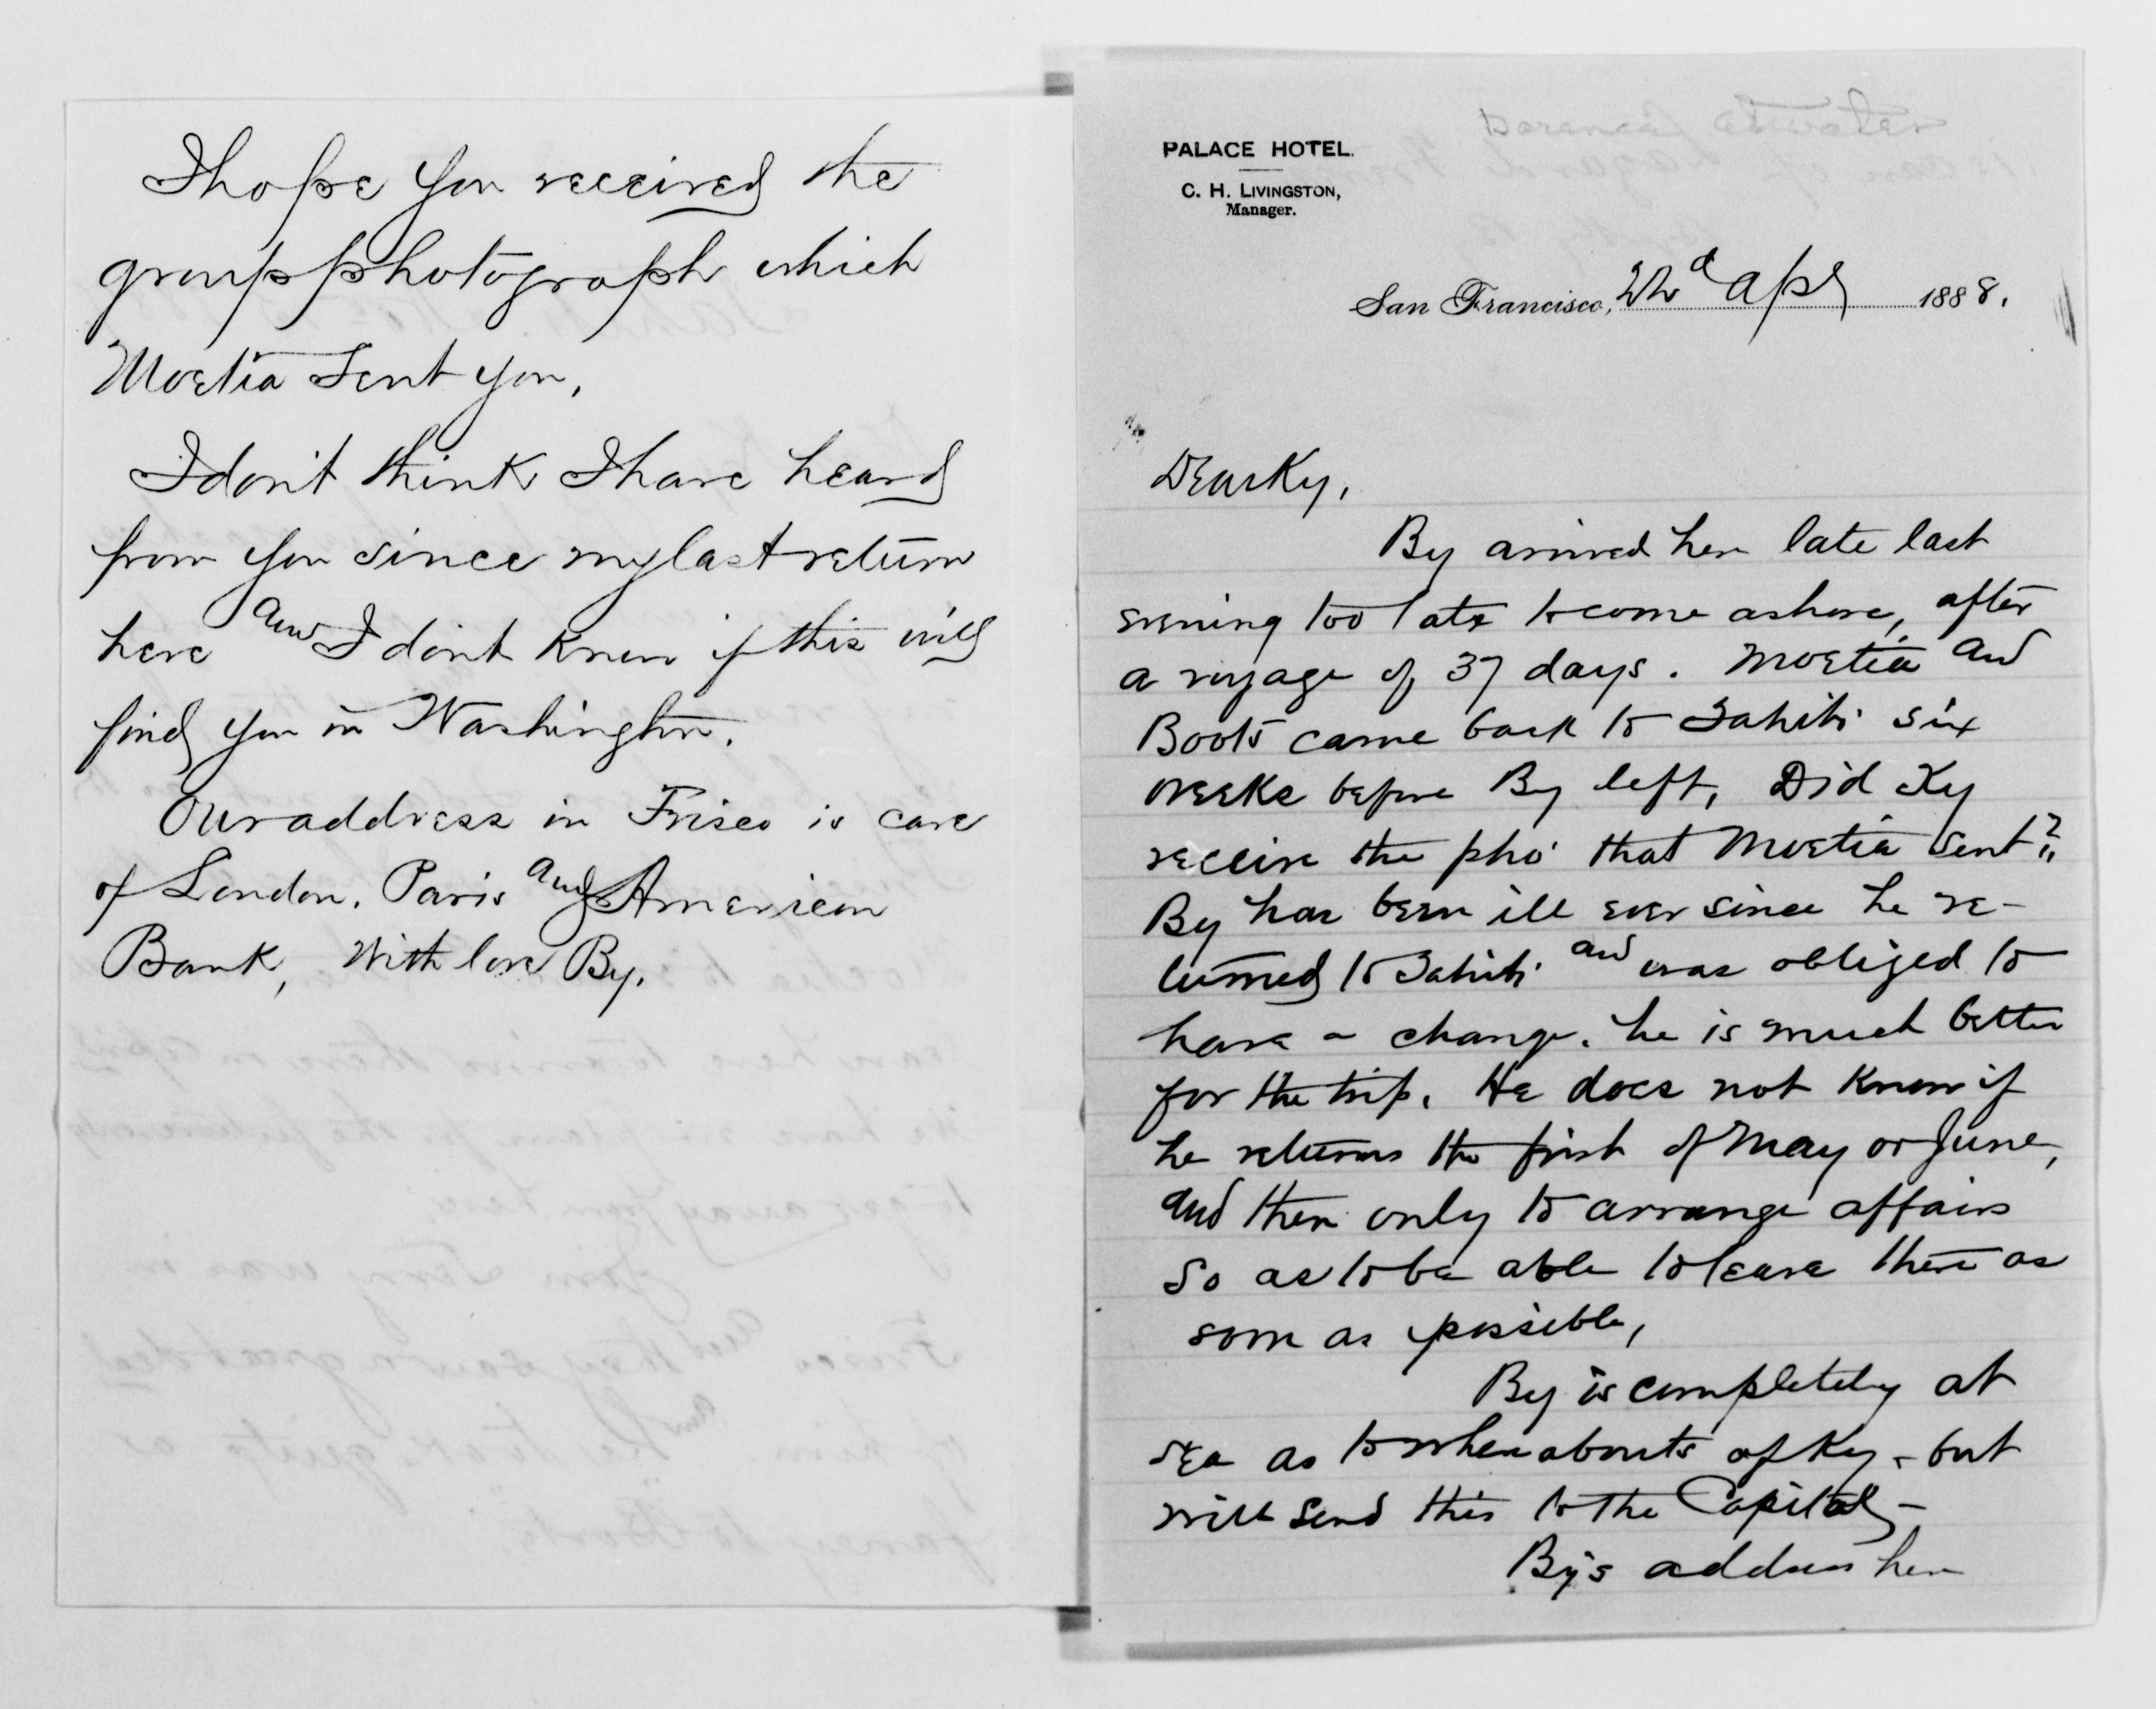 I hope you received the
group photograph which
Moetia sent you.
I don't think I have heard
from you since my last return
here and I don't know if this will
find you in Washington.
Our address in Frisco is care
of London, Paris and American
Bank, With love By.
PALACE HOTEL.
C. H. LIVINGSTON,
Manager.
San Francisco, 22d Apl 1888.
Dear Ky,
By arrived here late last
evening too late to come ashore, after
a voyage of 37 days. Moetia and
Boots came back to Tahiti six
weeks before By left. Did Ky
receive the pho' that Moetia sent?
By has been ill ever since he re-
turned to Tahiti and was obliged to
have a change. he is much better
for the trip. He does not know if
he returns the first of May or June,
and then only to arrange affairs
so as to be able to leave there as
soon as possible,
By is completely at
sea as to whereabouts of Ky - but
will send this to the Capital -
By's address here